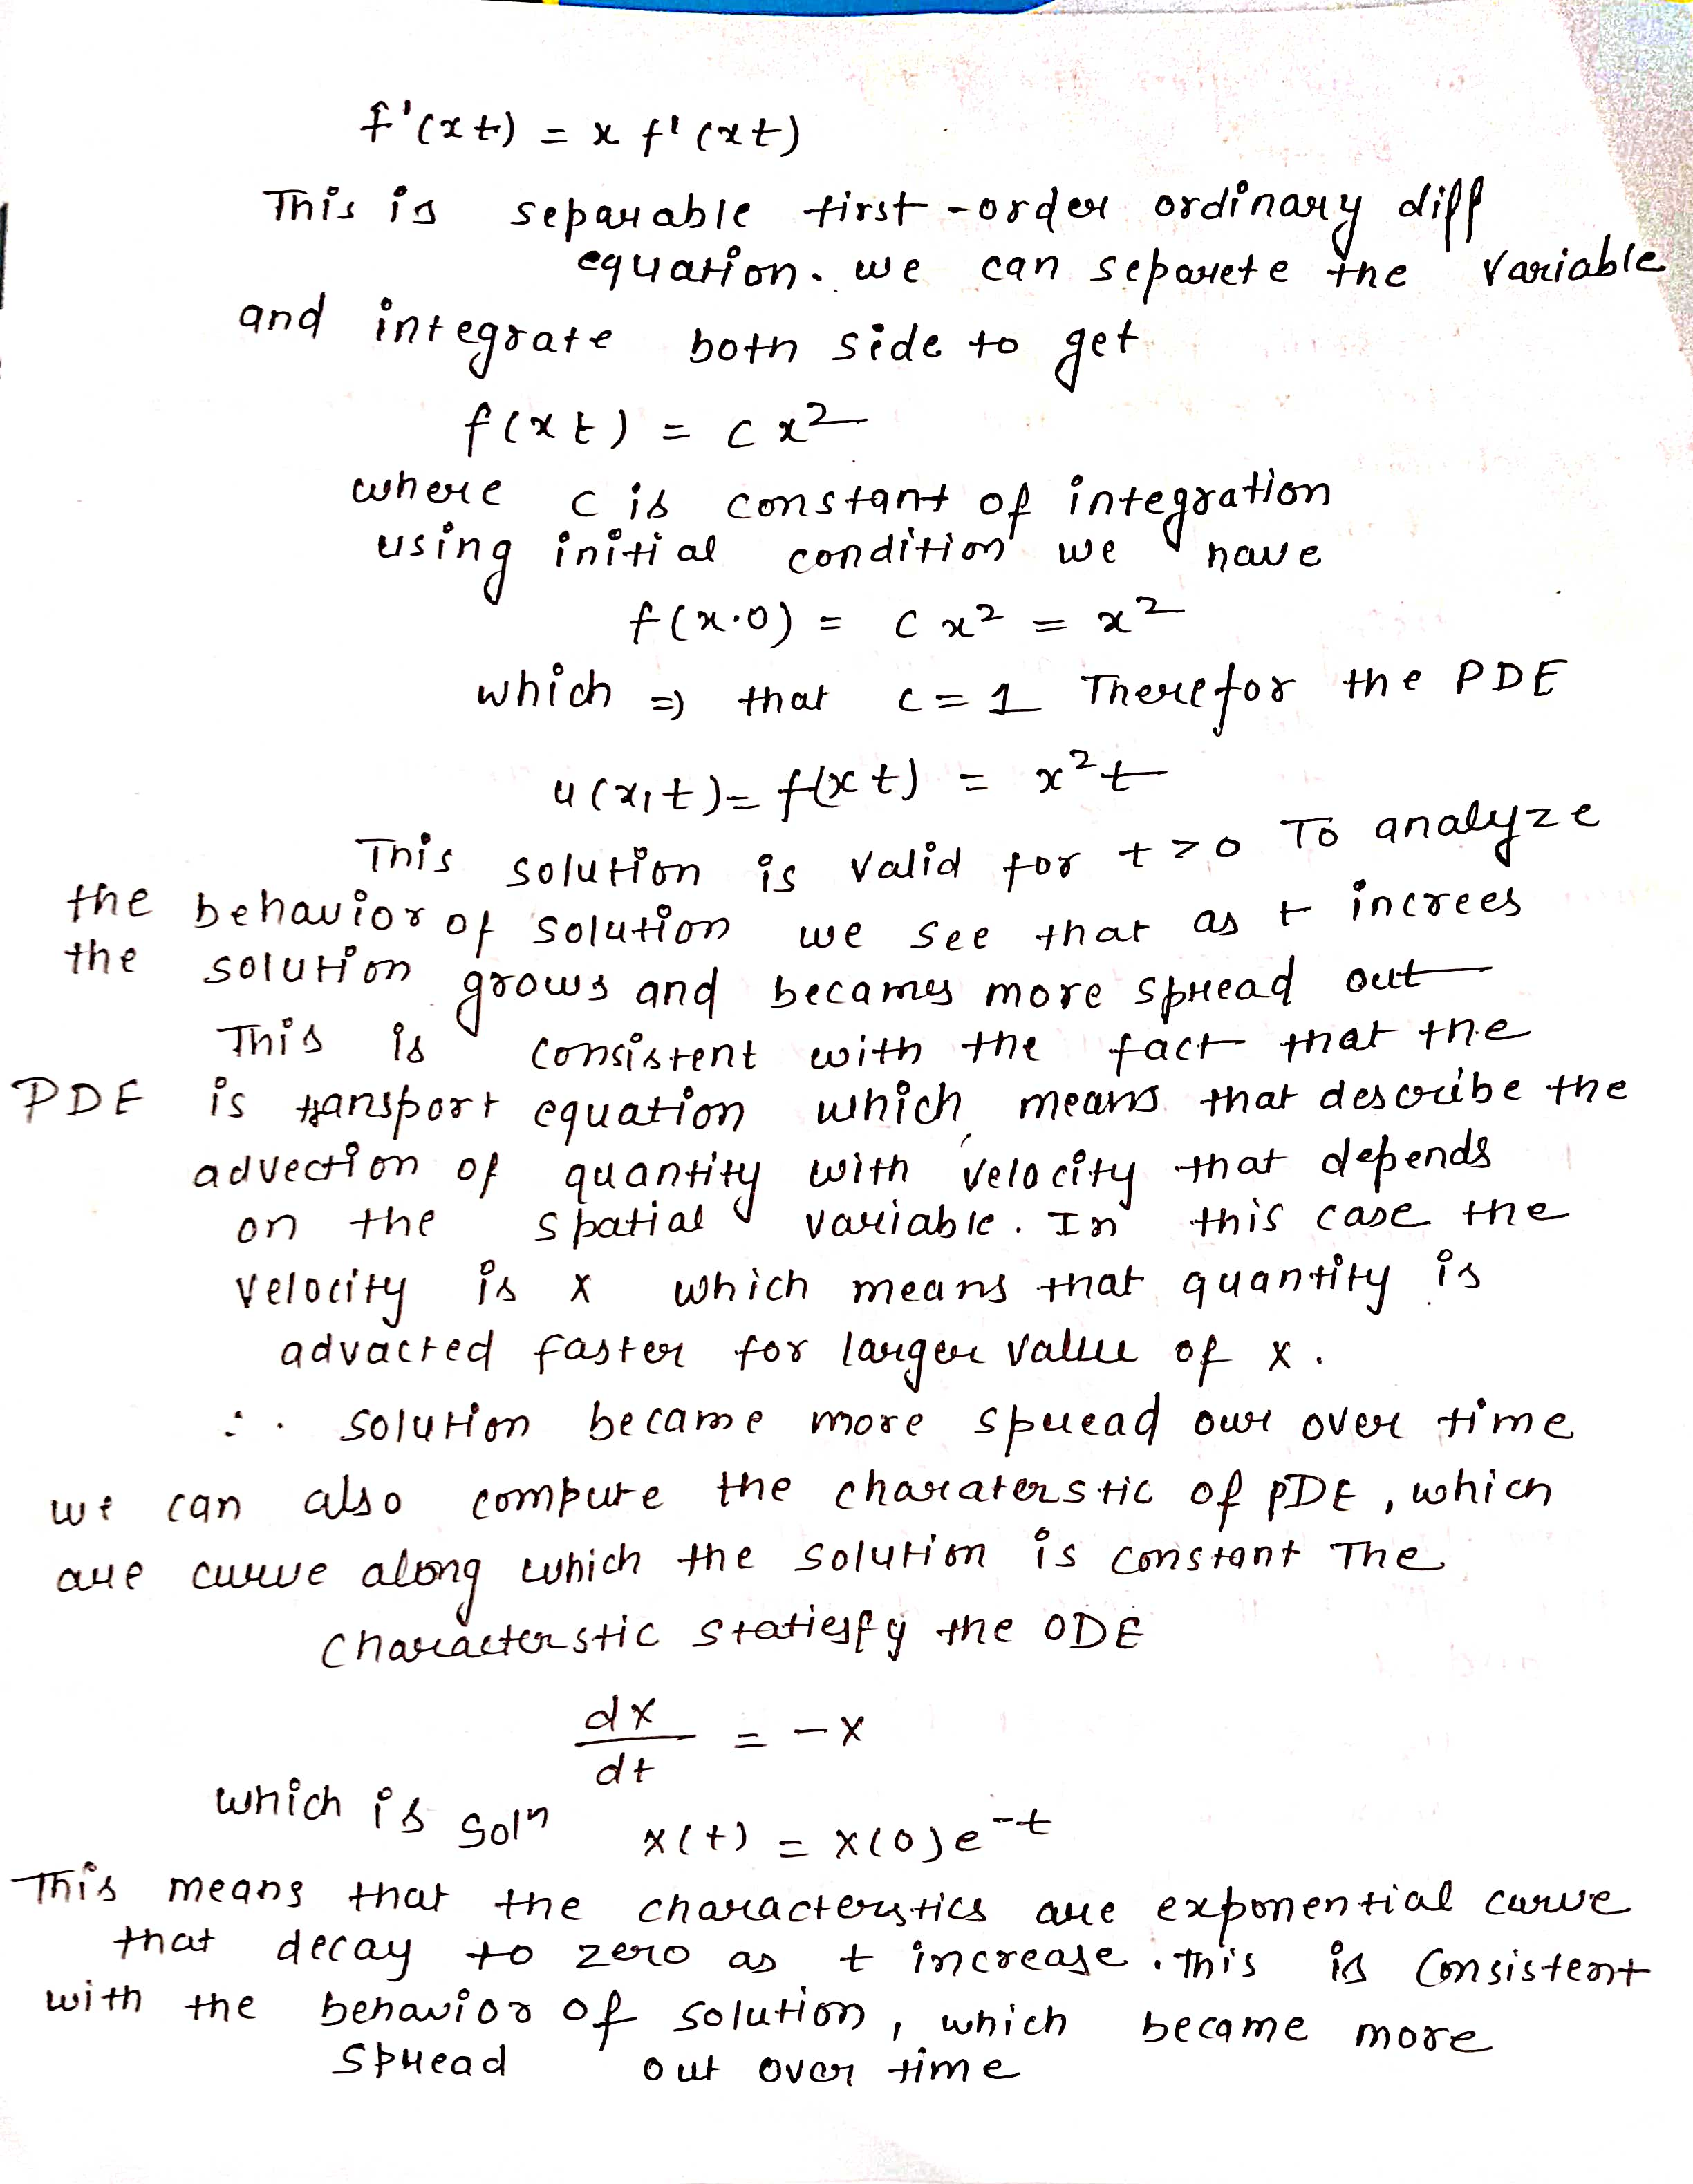 f'(xt) = x f'(xt)
This is separable first-order ordinary diff
equation. we can separete the variable
and integrate both side to get
f(xt) = c x²
where c is constant of integration
using initial condition we have
f(x.0) = c x² = x²
which ⇒ that c = 1 Therefor the PDE
u(x,t) = f(xt) = x²t
This solution is valid for t>0 To analyze
the behavior of solution we see that as t increes
the solution grows and becames more spread out
This is consistent with the fact that the
PDE is transport equation which means that describe the
advection of quantity with velocity that depends
on the spatial variable. In this case the
velocity is x which means that quantity is
advacted faster for larger value of x.
∴ solution became more spread our over time
we can also compute the charaterstic of PDE, which
are curve along which the solution is constant The
Characterstic Statiesfy the ODE
dx/dt = -x
which is Solⁿ x(t) = x(0)e^-t
This means that the characterstics are exponential curve
that decay to zero as t increase. This is Consistent
with the behavior of solution, which became more
Spread out over time